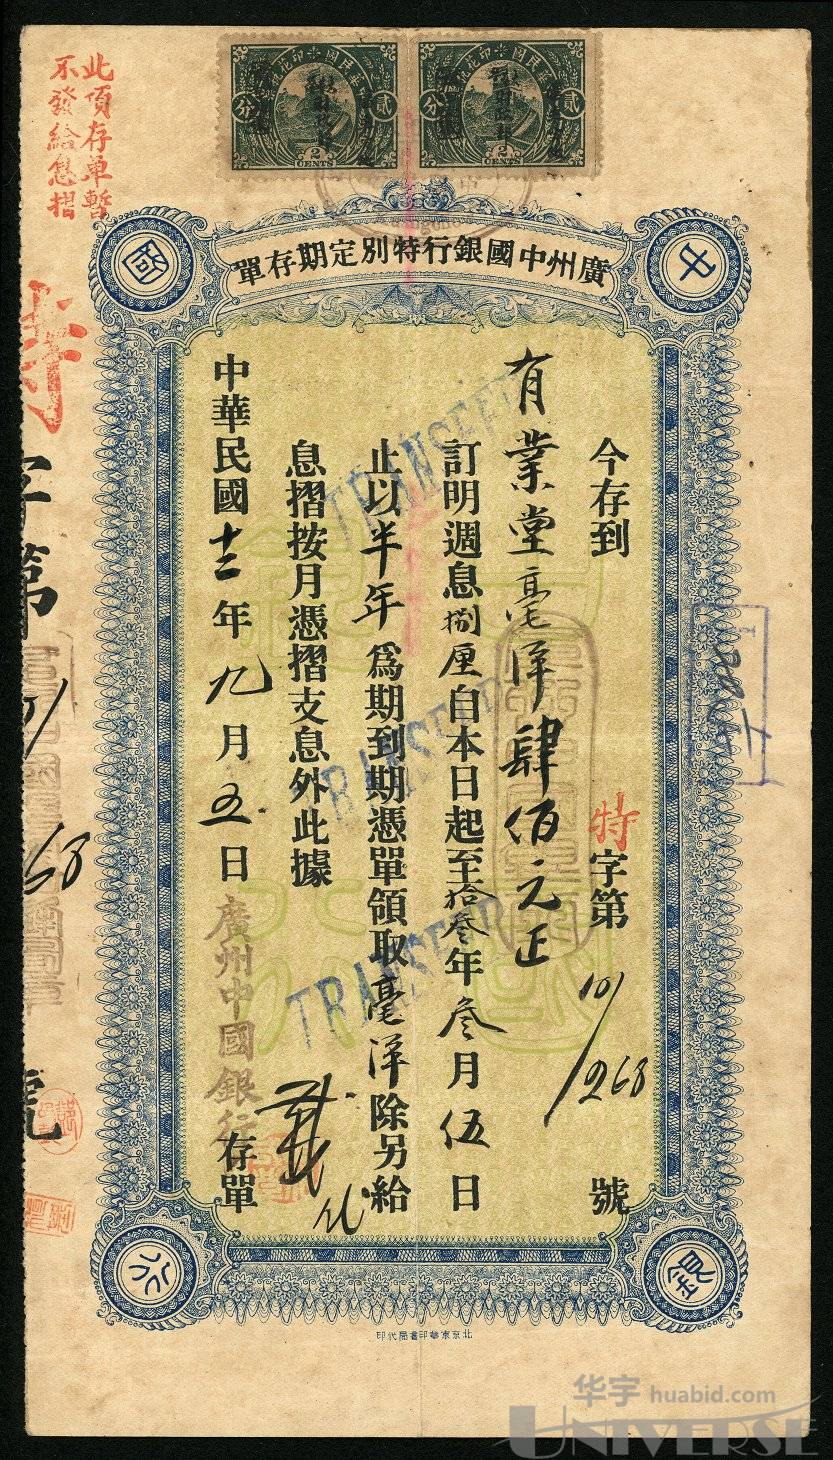 此項存單暫
不發給息摺
貳分
2
CENTS
貳
2
CENTS
廣州中國銀行特別定期存單
中
國
銀
行
今存到
特字第101/268號
有業堂毫洋肆佰元正
訂明週息捌厘自本日起至拾叁年叁月伍日
止以半年為期到期憑單領取毫洋除另給
息摺按月憑摺支息外此據
中華民國十二年九月五日
廣州中國銀行存單
TRANSFERD
TRANSFERD
TRANSFERD
字第
68
號
北京東華印書局代印
华宇 huabid.com
UNIVERSE